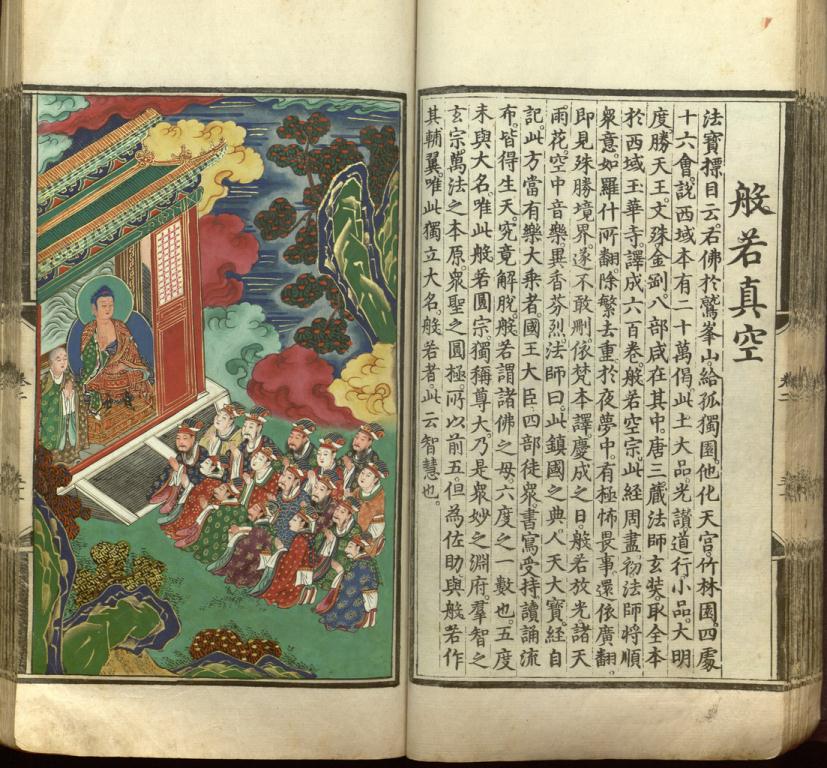 般若真空
法寶標目云若佛於鷲峯山給孤獨園他化天宮竹林園四處
十六會說西域本有二十萬偈此土大品光讚道行小品大明
度勝天王文殊金剛八部咸在其中唐三藏法師玄奘取全本
於西域玉華寺譯成六百卷般若空宗此經周盡初法師將順
衆意如羅什所翻除繁去重於夜夢中有極怖畏事還依廣翻
即見殊勝境界遂不敢刪依梵本譯慶成之日般若放光諸天
雨花空中音樂異香芬烈法師曰此鎮國之典人天大寶經自
記此方當有樂大乘者國王大臣四部徒衆書寫受持讀誦流
布皆得生天究竟解脫般若謂諸佛之母六度之一數也五度
未與大名唯此般若圓宗獨稱尊大乃是衆妙之淵府羣智之
玄宗萬法之本原衆聖之圓極所以前五但為佐助與般若作
其輔翼唯此獨立大名般若者此云智慧也